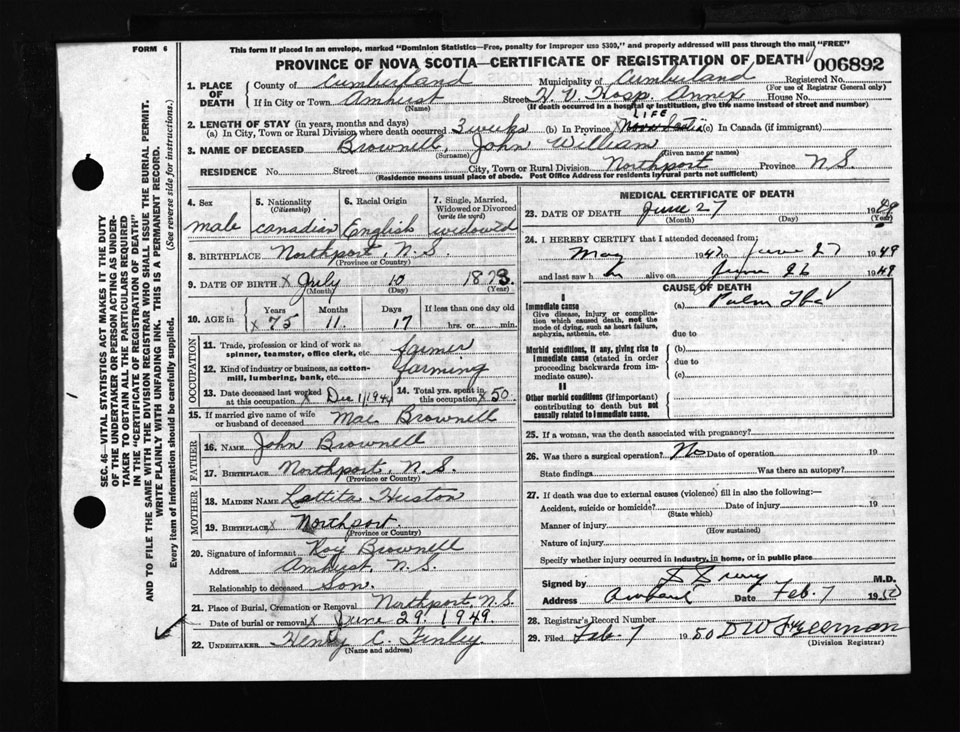 FORM 6
This form if placed in an envelope, marked "Dominion Statistics—Free, penalty for improper use $300," and properly addressed will pass through the mail "FREE"
PROVINCE OF NOVA SCOTIA—CERTIFICATE OF REGISTRATION OF DEATH 006892
1. PLACE OF DEATH
County of Cumberland Municipality of Cumberland Registered No.
(For use of Registrar General only)
If in City or Town Amherst Street H. V. Hosp. Annex House No.
(Name) (If death occurred in a hospital or institution, give the name instead of street and number)
2. LENGTH OF STAY (in years, months and days) LIFE
(a) In City, Town or Rural Division where death occurred 3 weeks (b) In Province Nova Scotia (c) In Canada (if immigrant)
3. NAME OF DECEASED Brownell, John William
(Surname) (Given name or names)
RESIDENCE No. Street City, Town or Rural Division Northport Province N S
(Residence means usual place of abode. Post Office Address for residents in rural parts not sufficient)
4. Sex male
5. Nationality (Citizenship) Canadian
6. Racial Origin English
7. Single, Married, Widowed or Divorced (write the word) widowed
8. BIRTHPLACE Northport, N.S.
(Province or Country)
9. DATE OF BIRTH x July 10 1873.
(Month) (Day) (Year)
10. AGE in Years Months Days If less than one day old
x 75 11. 17 hrs. or min.
OCCUPATION
11. Trade, profession or kind of work as spinner, teamster, office clerk, etc. farmer
12. Kind of industry or business, as cotton-mill, lumbering, bank, etc. farming
13. Date deceased last worked at this occupation x Dec 1/194 14. Total yrs. spent in this occupation x 50
15. If married give name of wife or husband of deceased Mae Brownell
FATHER
16. NAME John Brownell
17. BIRTHPLACE Northport, N.S.
(Province or Country)
MOTHER
18. MAIDEN NAME Lattita Huston
19. BIRTHPLACE x Northport.
(Province or Country)
20. Signature of informant Roy Brownell
Address Amherst, N.S.
Relationship to deceased Son.
21. Place of Burial, Cremation or Removal Northport, N.S.
Date of burial or removal x June 29. 1949.
22. UNDERTAKER Henry C. Finley
(Name and address)
MEDICAL CERTIFICATE OF DEATH
23. DATE OF DEATH June 27 1949
(Month) (Day) (Year)
24. I HEREBY CERTIFY that I attended deceased from
May 194 to June 27 1949
and last saw h alive on June 26 1949
CAUSE OF DEATH
I
Immediate cause (a) Pulm
Give disease, injury or complication which caused death, not the mode of dying, such as heart failure, asphyxia, asthenia, etc.
due to
Morbid conditions, if any, giving rise to immediate cause (stated in order proceeding backwards from immediate cause). (b)
due to
(c)
II
Other morbid conditions (if important) contributing to death but not causally related to immediate cause.
25. If a woman, was the death associated with pregnancy?
26. Was there a surgical operation? No Date of operation 19
State findings Was there an autopsy?
27. If death was due to external causes (violence) fill in also the following:
Accident, suicide or homicide? Date of injury 19
(State which)
Manner of injury
(How sustained)
Nature of injury
Specify whether injury occurred in industry, in home, or in public place
Signed by M.D.
Address Date Feb. 7 1950
28. Registrar's Record Number
29. Filed Feb. 7 1950 D W Freeman
(Division Registrar)
SEC. 46—VITAL STATISTICS ACT MAKES IT THE DUTY
OF THE UNDERTAKER OR PERSON ACTING AS UNDER-
TAKER TO OBTAIN ALL THE PARTICULARS REQUIRED
IN THE "CERTIFICATE OF REGISTRATION OF DEATH"
AND TO FILE THE SAME WITH THE DIVISION REGISTRAR WHO SHALL ISSUE THE BURIAL PERMIT.
WRITE PLAINLY WITH UNFADING INK. THIS IS A PERMANENT RECORD.
Every item of information should be carefully supplied. (See reverse side for instructions.)